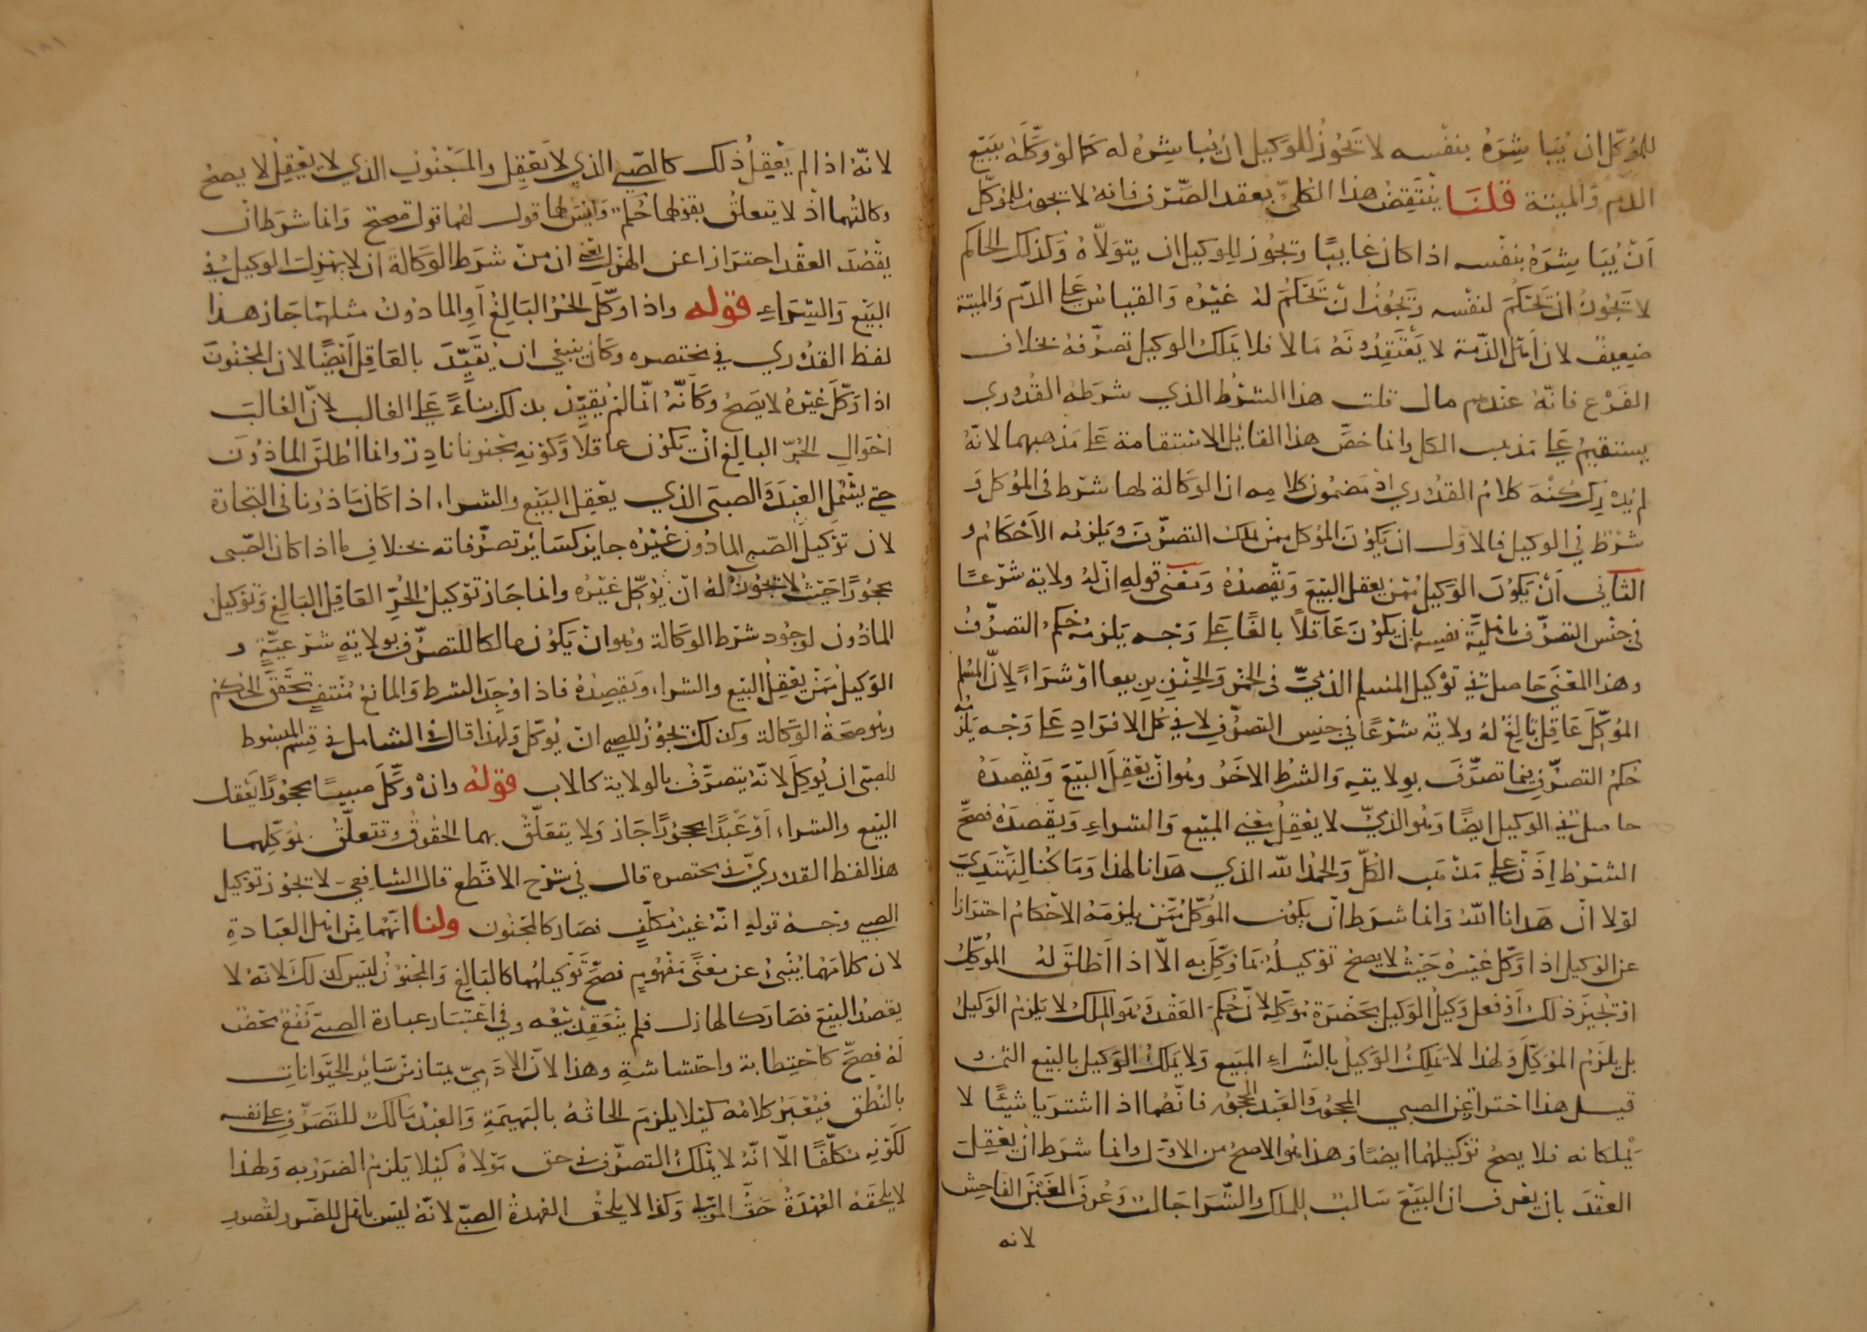 للموكل ان يباشره بنفسه لا تجوز للوكيل ان يباشره له كما لو وكله ببيع
الدم والميتة قلنا ينتقض هذا الكلي بعقد الصرف فانه لا تجوز للموكل
ان يباشره بنفسه اذا كان غايبا وتجوز للوكيل ان يتولاه وكذلك الحاكم
لا تجوز ان تحكم لنفسه وتجوز ان تحكم له غيره والقياس على الدم والميتة
ضعيف لان اهل الذمة لا يعتقدونه مالا فلا يملك الوكيل تصرفه بخلاف
الفرع فانه عندهم مال قلت هذا الشرط الذي شرطه القدوري
يستقيم على مذهب الكل وانما خص هذا القايل الاستقامة على مذهبهما لانه
لم يدرك كنه كلام القدوري اذ مضمون كلامه ان الوكالة لها شرط في الموكل و
شرط في الوكيل فالاول ان يكون الموكل ممن يملك التصرف ويلزمه الاحكام و
الثاني ان يكون الوكيل ممن يعقل البيع ويقصده ومعنى قوله ان له ولاية شرعا
في جنس التصرف باهلية نفسه بان يكون عاقلا بالغا على وجه يلزمه حكم التصرف
وهذا المعنى حاصل في توكيل المسلم الذمي في الخمر والخنزير بيعا او شراء لان المسلم
الموكل عاقل بالغ له ولاية شرعا في جنس التصرف لا في كل الافراد على وجه يلزمه
حكم التصرف فيما تصرف بولايته والشرط الاخر وهو ان يعقل البيع ويقصده
حاصل في الوكيل ايضا وهو الذمي لا يعقل معنى المبيع والشراء ويقصده فصح
الشرط اذن على مذهب الكل والحمد لله الذي هدانا لهذا وما كنا لنهتدي
لولا ان هدانا الله وانما شرط ان يكون الموكل ممن يلزمه الاحكام احترازا
عن الوكيل اذا وكل غيره حيث لا يصح توكيله بما وكل به الا اذا اطلق له الموكل
او تجيز ذلك او فعل وكيل الوكيل بحضرة موكله لان حكم العقد وهو الملك لا يلزم الوكيل
بل يلزم الموكل ولهذا لا يملك الوكيل بالشراء المبيع ولا يملك الوكيل بالبيع الثمن و
قيل هذا احتراز عن الصبي المحجور والعبد المحجور فانهما اذا اشتريا شيئا لا
يملكانه فلا يصح توكيلهما ايضا وهذا هو الاصح من الاول وانما شرط ان يعقل
العقد بان يعرف ان البيع سالب للملك والشرا جالب وعرف الغبن الفاحش
لانه
لانه اذا لم يعقل ذلك كالصبي الذي لا يعقل والمجنون الذي لا يعقل لا يصح
وكالتهما اذ لا يتعلق بقولهما حكم وليس لهما قول لهما قول صحيح وانما شرط ان
يقصد العقد احترازا عن الهزل يعني ان من شرط الوكالة ان لا يهزل الوكيل في
البيع والشراء قوله واذا وكل الحر البالغ او الماذون مثلهما جاز هذا
لفظ القدوري في مختصره وكان ينبغي ان يقيد بالعاقل ايضا لان المجنون
اذا وكل غيره لا يصح وكانه انما لم يقيد بذلك بناء على الغالب لان الغالب
احوال الحر البالغ ان يكون عاقلا وكونه مجنونا نادر وانما اطلق الماذون
حتى يشمل العبد والصبي الذي يعقل البيع والشراء اذا كان ماذونا في التجارة
لان توكيل الصبي الماذون غيره جايز كساير تصرفاته بخلاف ما اذا كان الصبي
محجورا حيث لا تجوز له ان يوكل غيره وانما جاز توكيل الحر العاقل البالغ وتوكيل
الماذون لوجود شرط الوكالة وهو ان يكون مالكا للتصرف بولاية شرعية و
الوكيل ممن يعقل البيع والشراء ويقصده فاذا وجد الشرط والمانع منتف تحقق الحكم
وهو صحة الوكالة وكذلك تجوز للصبي ان يوكل ولهذا قال في الشامل في قسم المبسوط
للصبي ان يوكل لانه يتصرف بالولاية كالاب قوله وان وكل صبيا محجورا يعقل
البيع والشراء او عبدا محجورا جاز ولا يتعلق بهما الحقوق وتتعلق بموكلهما
هذا لفظ القدوري في مختصره قال في شرح الاقطع قال الشافعي لا تجوز توكيل
الصبي وجه قوله انه غير مكلف فصار كالمجنون ولنا انهما من اهل العبادة
لان كلامهما ينبئ عن معنى مفهوم فصح توكيلهما كالبالغ والمجنون ليس كذلك لانه لا
يقصد البيع فصار كالهازل فلم ينعقد بيعه وفي اعتبار عبارة الصبي نفع محض
له فصح كاحتطابه واحتشاشه وهذا لان الادمي يمتاز من ساير الحيوانات
بالنطق فيعتبر كلامه كيلا يلزم الحاقه بالبهيمة والعبد مالك للتصرف على نفسه
لكونه مكلفا الا انه لا يملك التصرف في حق مولاه كيلا يلزم الضرر به ولهذا
لا يلحقه العهدة حق المولى وكذا لا يلحق العهدة الصبي لانه ليس باهل للضرر لقصور